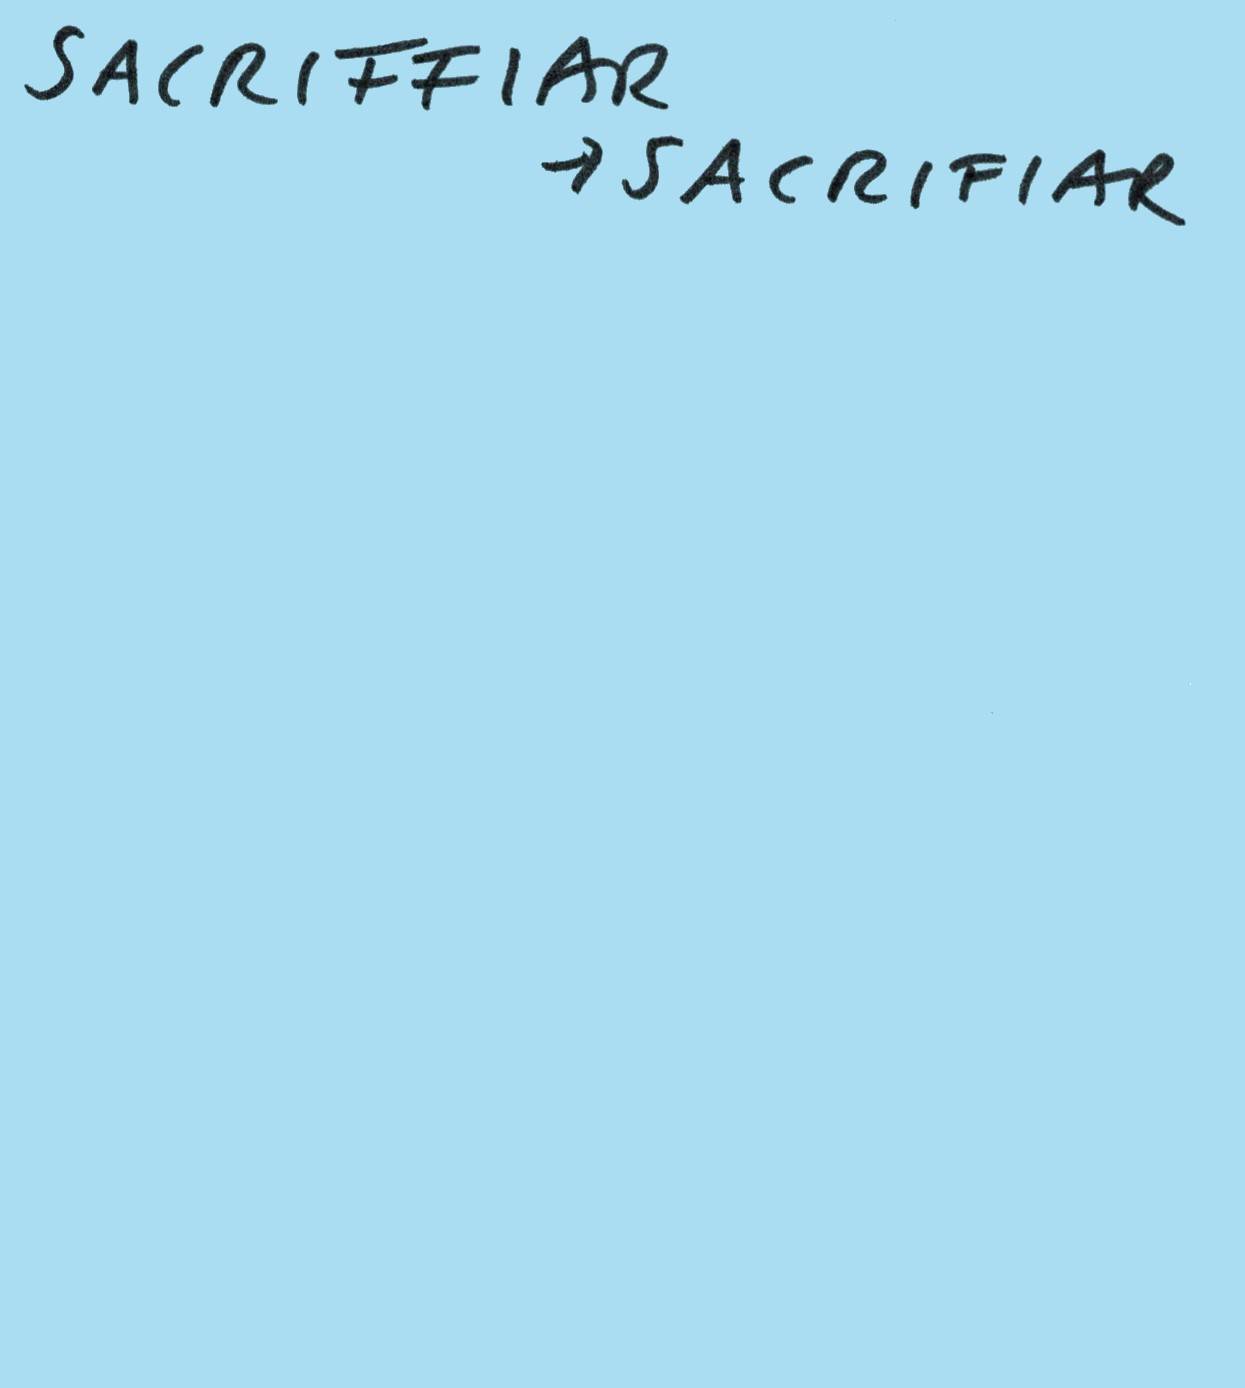 SACRIFFIAR
→SACRIFIAR